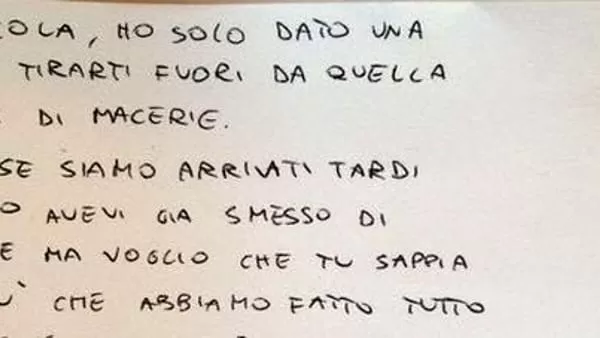 COLA, HO SOLO DATO UNA
TIRARTI FUORI DA QUELLA
DI MACERIE.
SE SIAMO ARRIVATI TARDI
O AVEVI GIA SMESSO DI
E MA VOGLIO CHE TU SAPPIA
Ù CHE ABBIAMO FATTO TUTTO